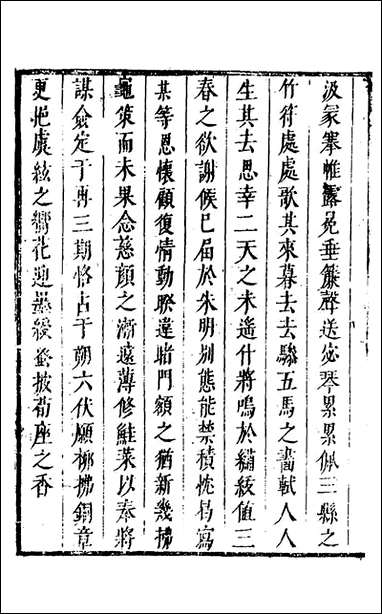 汲冢搴帷露冕垂簾聲送宓琴累累佩三縣之
竹符處處歌其來暮去去驂五馬之畵軾人人
生其去思幸二天之未遙什將鳴於繡紋值三
春之欲謝候已届於朱明别態能禁積忱曷寫
某等恩懷顧復情動睽違睹門額之猶新幾拂
龜策而未果念慈顔之漸遠薄修鮭菜以奉將
謀僉定于再三期恪占于朔六伏願栁拂銅章
更挹虞絃之嚮花迎墨綬叅披荀座之香